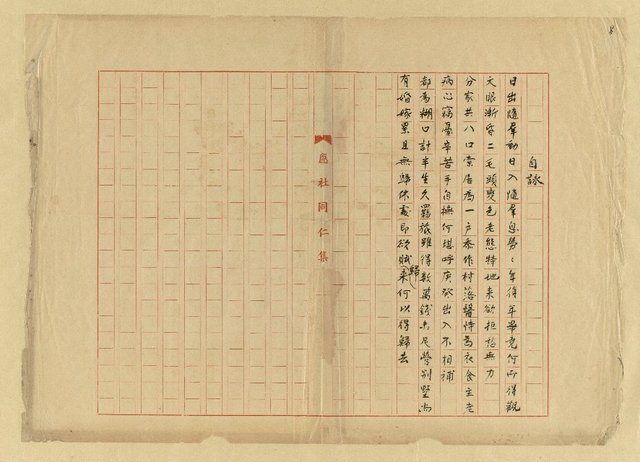 自詠
日出隨羣動日入隨羣息勞〻年復年畢竟何所得觀
天眼漸昏二毛頭變色老態特地來欲拒恐無力
分家共八口索居為一戶忝作村落醫恃為衣食主老
病心竊憂辛苦手自撫何堪呼庚癸出入不相補
都為糊口計半生久羈旅雖得數萬錢未足營別墅尚
有婚嫁累且無歸休處即欲賦歸來何以得歸去
鳧社同仁集
8